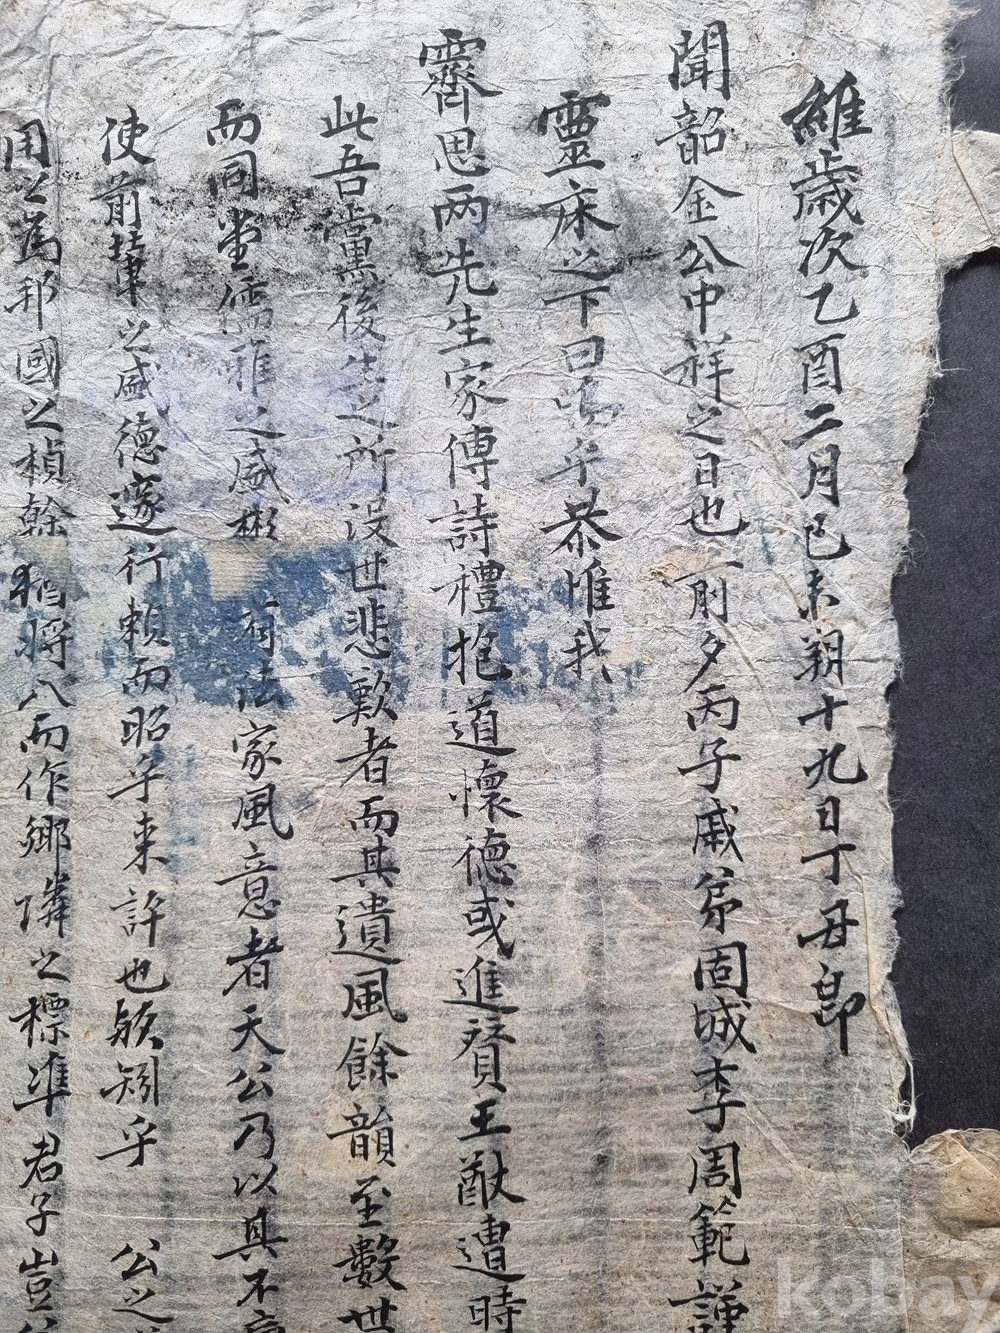 維歲次乙酉二月己未朔十九日丁丑卽
聞韶金公中祥之日也前夕丙子戚弟固城李周範謹
靈床之下曰嗚乎恭惟我
霽思两先生家傳詩禮抱道懷德或進賛王猷遭時
此吾黨後生之所没世悲歎者而其遺風餘韻至數世
而同堂儒雅之盛彬有法家風意者天公乃以具不
使前輩之盛德邃行賴而昭乎来許也欤矧乎公之
用之為邦國之楨幹猶將八而作鄉隣之標準君子豈
kobay